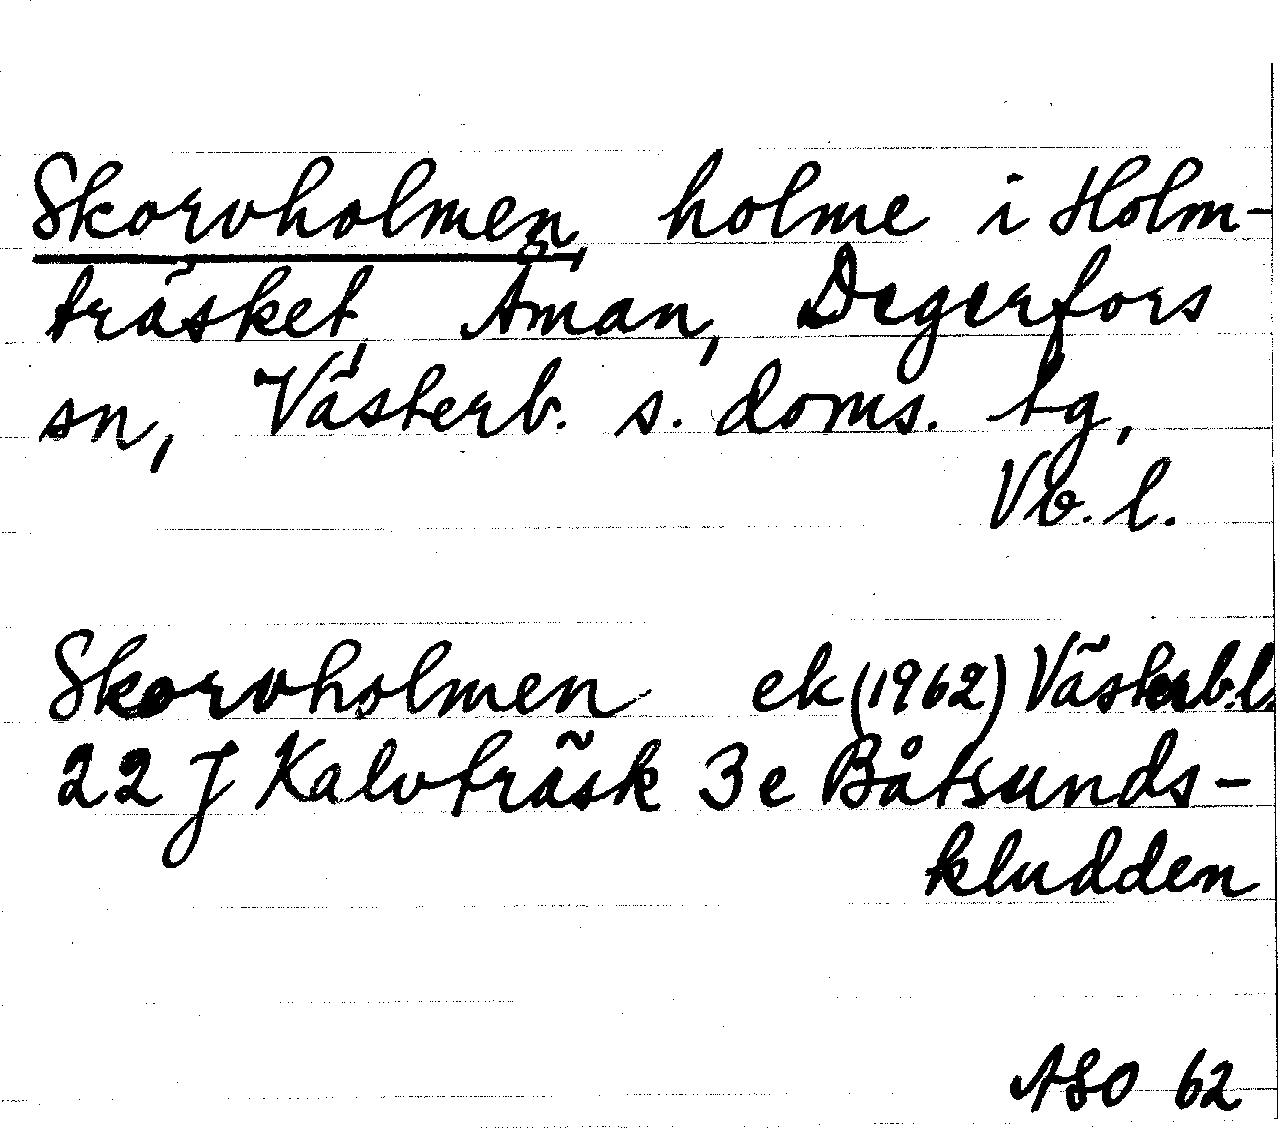 Skorvholmen, holme i Holm-
träsket, Åman, Degerfors
sn, Västerb. s. doms. tg,
Vb. l.
Skorvholmen ek (1962) Västerb.l.
22 J Kalvträsk 3e Båtsunds-
kludden
ASO 62